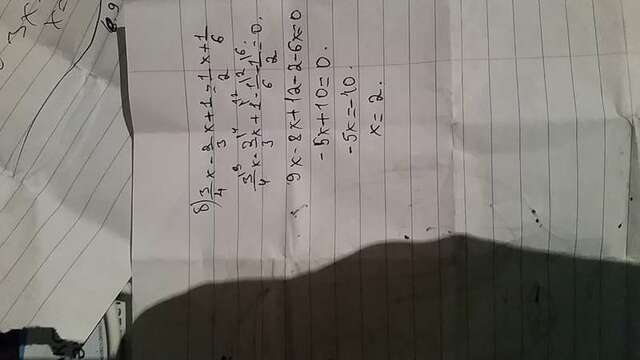 3x =
x =
б) 3/4 x - 2/3 x + 1 = 1/2 x + 1/6
3/4 \3 x - 2/3 \4 x + 1 \12 - 1/6 \2 - 1/2 \6 = 0.
9x - 8x + 12 - 2 - 6x = 0
-5x + 10 = 0.
-5x = -10.
x = 2.